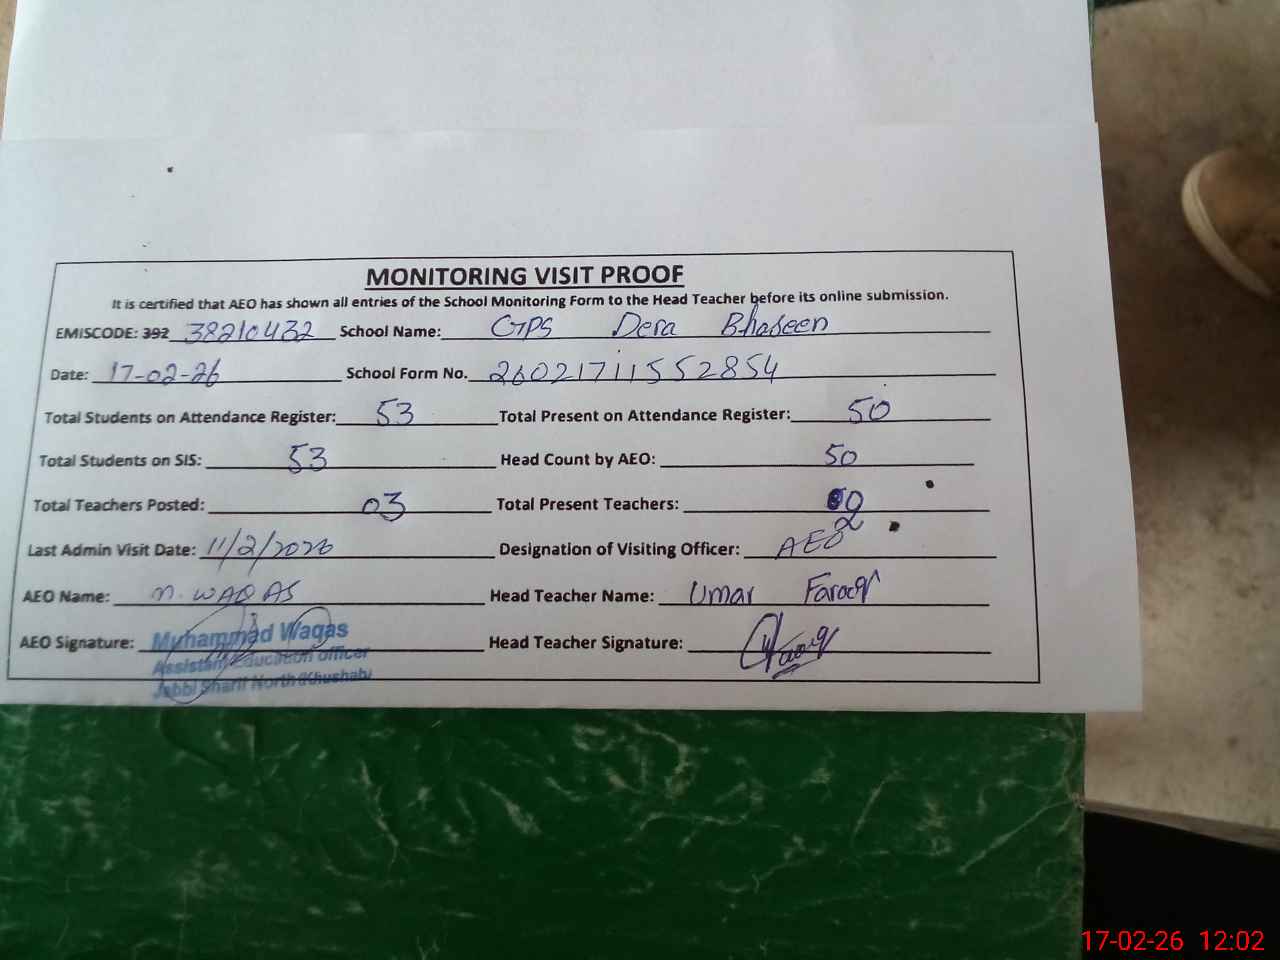 MONITORING VISIT PROOF
It is certified that AEO has shown all entries of the School Monitoring Form to the Head Teacher before its online submission.
EMISCODE: 392 38210432 School Name: GPS Dera Bhaseen
Date: 17-02-26 School Form No. 26021711552854
Total Students on Attendance Register: 53 Total Present on Attendance Register: 50
Total Students on SIS: 53 Head Count by AEO: 50
Total Teachers Posted: 03 Total Present Teachers: 02
Last Admin Visit Date: 11/2/2026 Designation of Visiting Officer: AEO
AEO Name: M. WAQAS Head Teacher Name: Umar Farooq
AEO Signature: Muhammad Waqas Head Teacher Signature: Farooq
Assistant Education Officer
Jabbi Sharif North (Khushab)
17-02-26 12:02